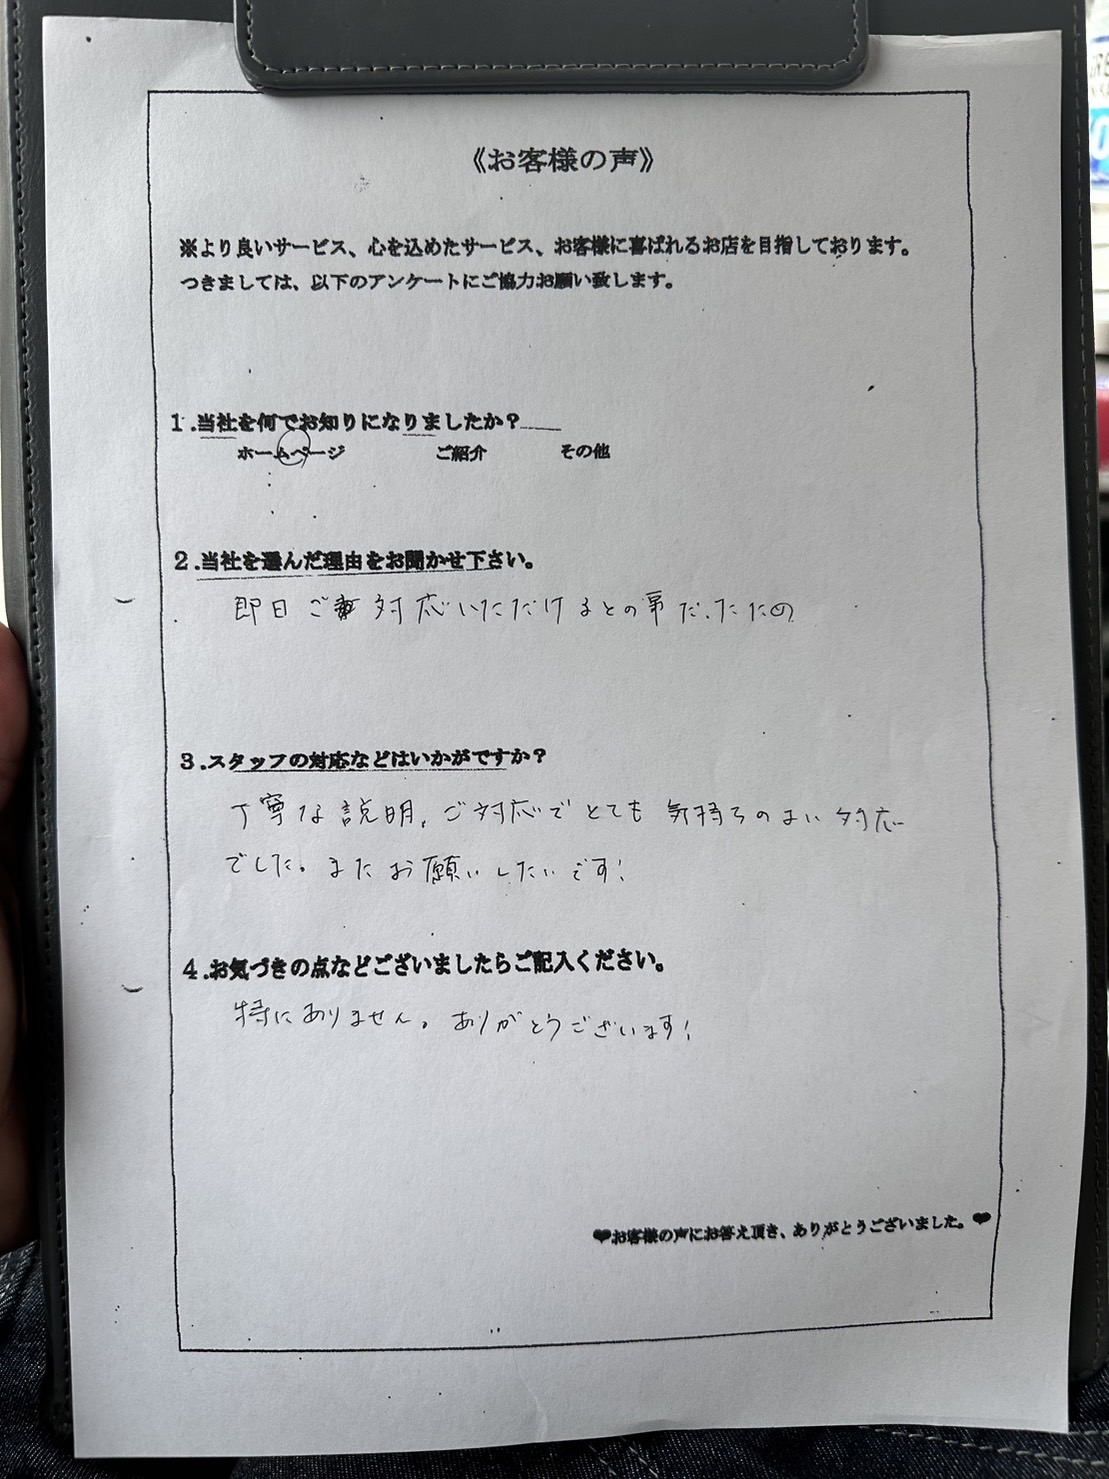 《お客様の声》
※より良いサービス、心を込めたサービス、お客様に喜ばれるお店を目指しております。
つきましては、以下のアンケートにご協力お願い致します。
1.当社を何でお知りになりましたか?
ホームページ ご紹介 その他
2.当社を選んだ理由をお聞かせ下さい。
即日ご対応いただけるとの事だったため
3.スタッフの対応などはいかがですか?
丁寧な説明、ご対応でとても気持ちのよい対応
でした。またお願いしたいです!
4.お気づきの点などございましたらご記入ください。
特にありません。ありがとうございます!
❤お客様の声にお答え頂き、ありがとうございました。❤